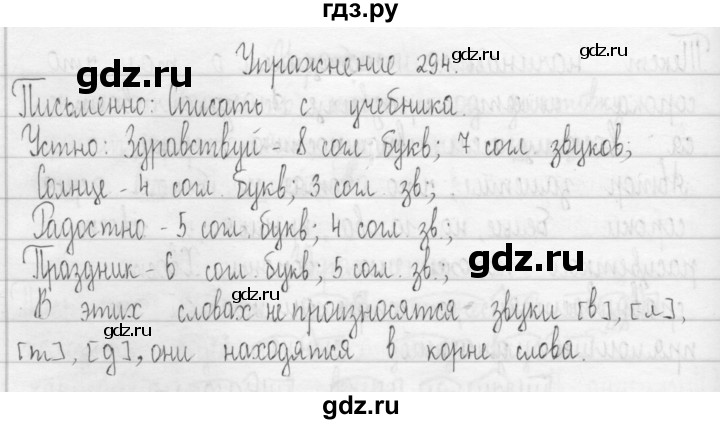 гдз.ру
Упражнение 294.
gdz.ru
Письменно: Списать с учебника.
gdz.ru
Устно: Здравствуй - 8 согл. букв; 7 согл. звуков;
Солнце - 4 согл. букв; 3 согл. зв.;
gdz.ru
Радостно - 5 согл. букв; 4 согл. зв.;
gdz.ru
Праздник - 6 согл. букв; 5 согл. зв.;
gdz.ru
В этих словах не произносятся звуки [в], [л],
[т], [д], они находятся в корне слова.
gdz.ru
gdz.ru
gdz.ru